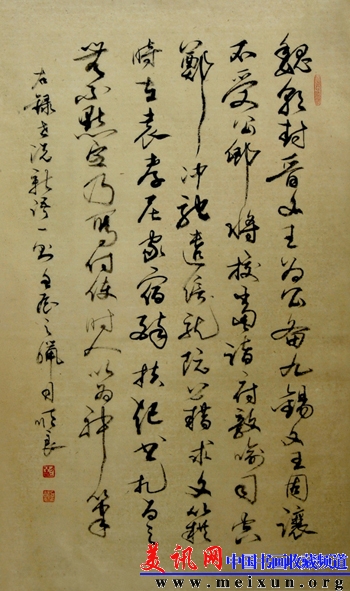 魏朝封晉文王為公備九錫文王固讓
不受公卿將校當詣府敦喻司空
鄭沖馳遣信就阮籍求文籍
時在袁孝尼家宿醉扶起書札為之
無所點定乃寫付使時人以為神筆
右錄世說新語一則壬辰之臘月順良
美讯网 中国书画收藏频道
www.meixun.org